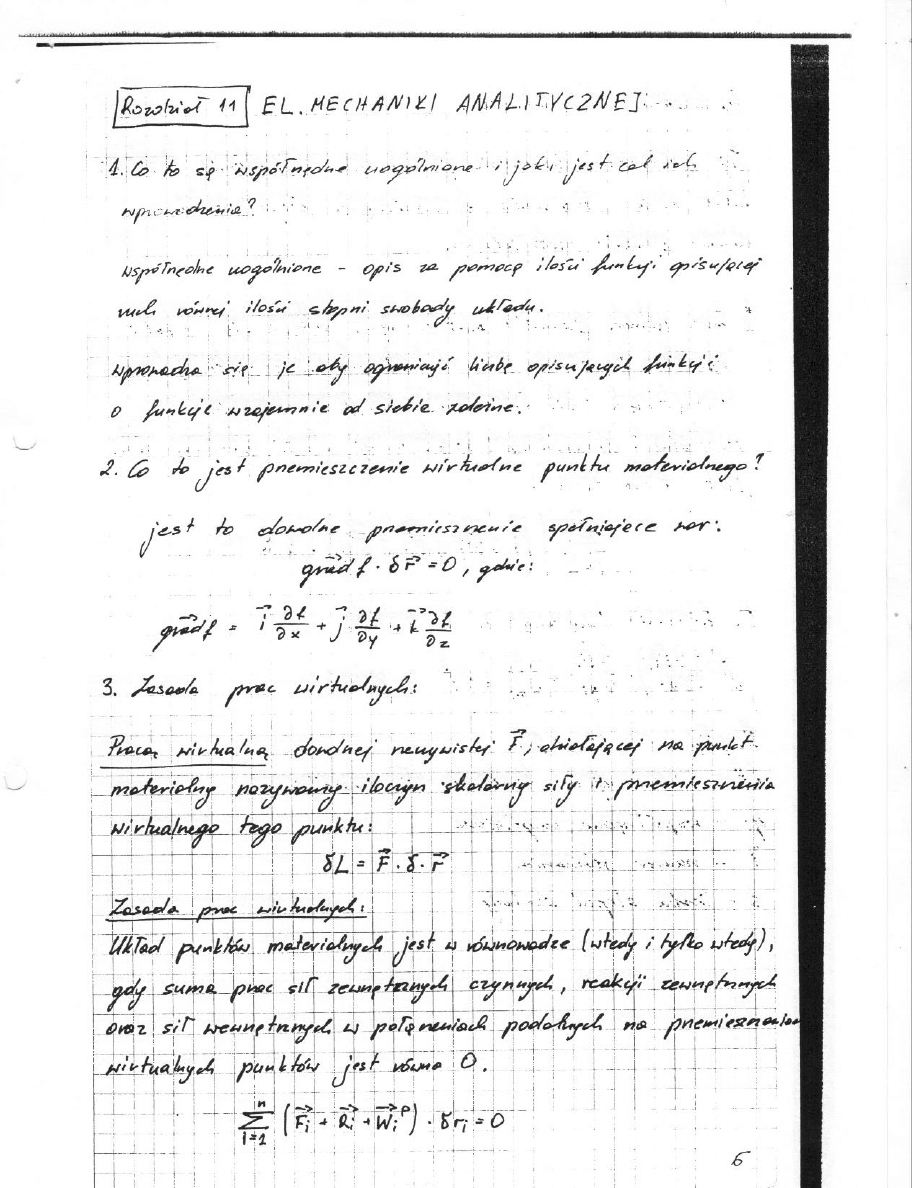 Rozdział 11 EL. MECHANIKI ANALITYCZNEJ
1. Co to są współrzędne uogólnione i jaki jest cel ich
wprowadzenia?
współrzędne uogólnione - opis za pomocą ilości funkcji opisującej
ruch równej ilości stopni swobody układu.
wprowadza się je aby ograniczyć liczbę opisujących funkcji
o funkcje wzajemnie od siebie zależne.
2. Co to jest przemieszczenie wirtualne punktu materialnego?
jest to dowolne przemieszczenie spełniające war:
grad f · δr⃗ = 0, gdzie:
grad f = i⃗ ∂f/∂x + j⃗ ∂f/∂y + k⃗ ∂f/∂z
3. Zasada prac wirtualnych:
Pracą wirtualną dowolnej rzeczywistej F⃗, działającej na punkt
materialny nazywamy iloczyn skalarny siły i przemieszczenia
wirtualnego tego punktu:
δL = F⃗ · δ · r⃗
Zasada prac wirtualnych:
Układ punktów materialnych jest w równowadze (wtedy i tylko wtedy),
gdy suma prac sił zewnętrznych czynnych, reakcji zewnętrznych
oraz sił wewnętrznych w połączeniach podatnych na przemieszczeniach
wirtualnych punktów jest równa 0.
∑ⁿᵢ₌₁ (F⃗ᵢ + R⃗ᵢ + W⃗ᵢᵖ) · δrᵢ = 0
6